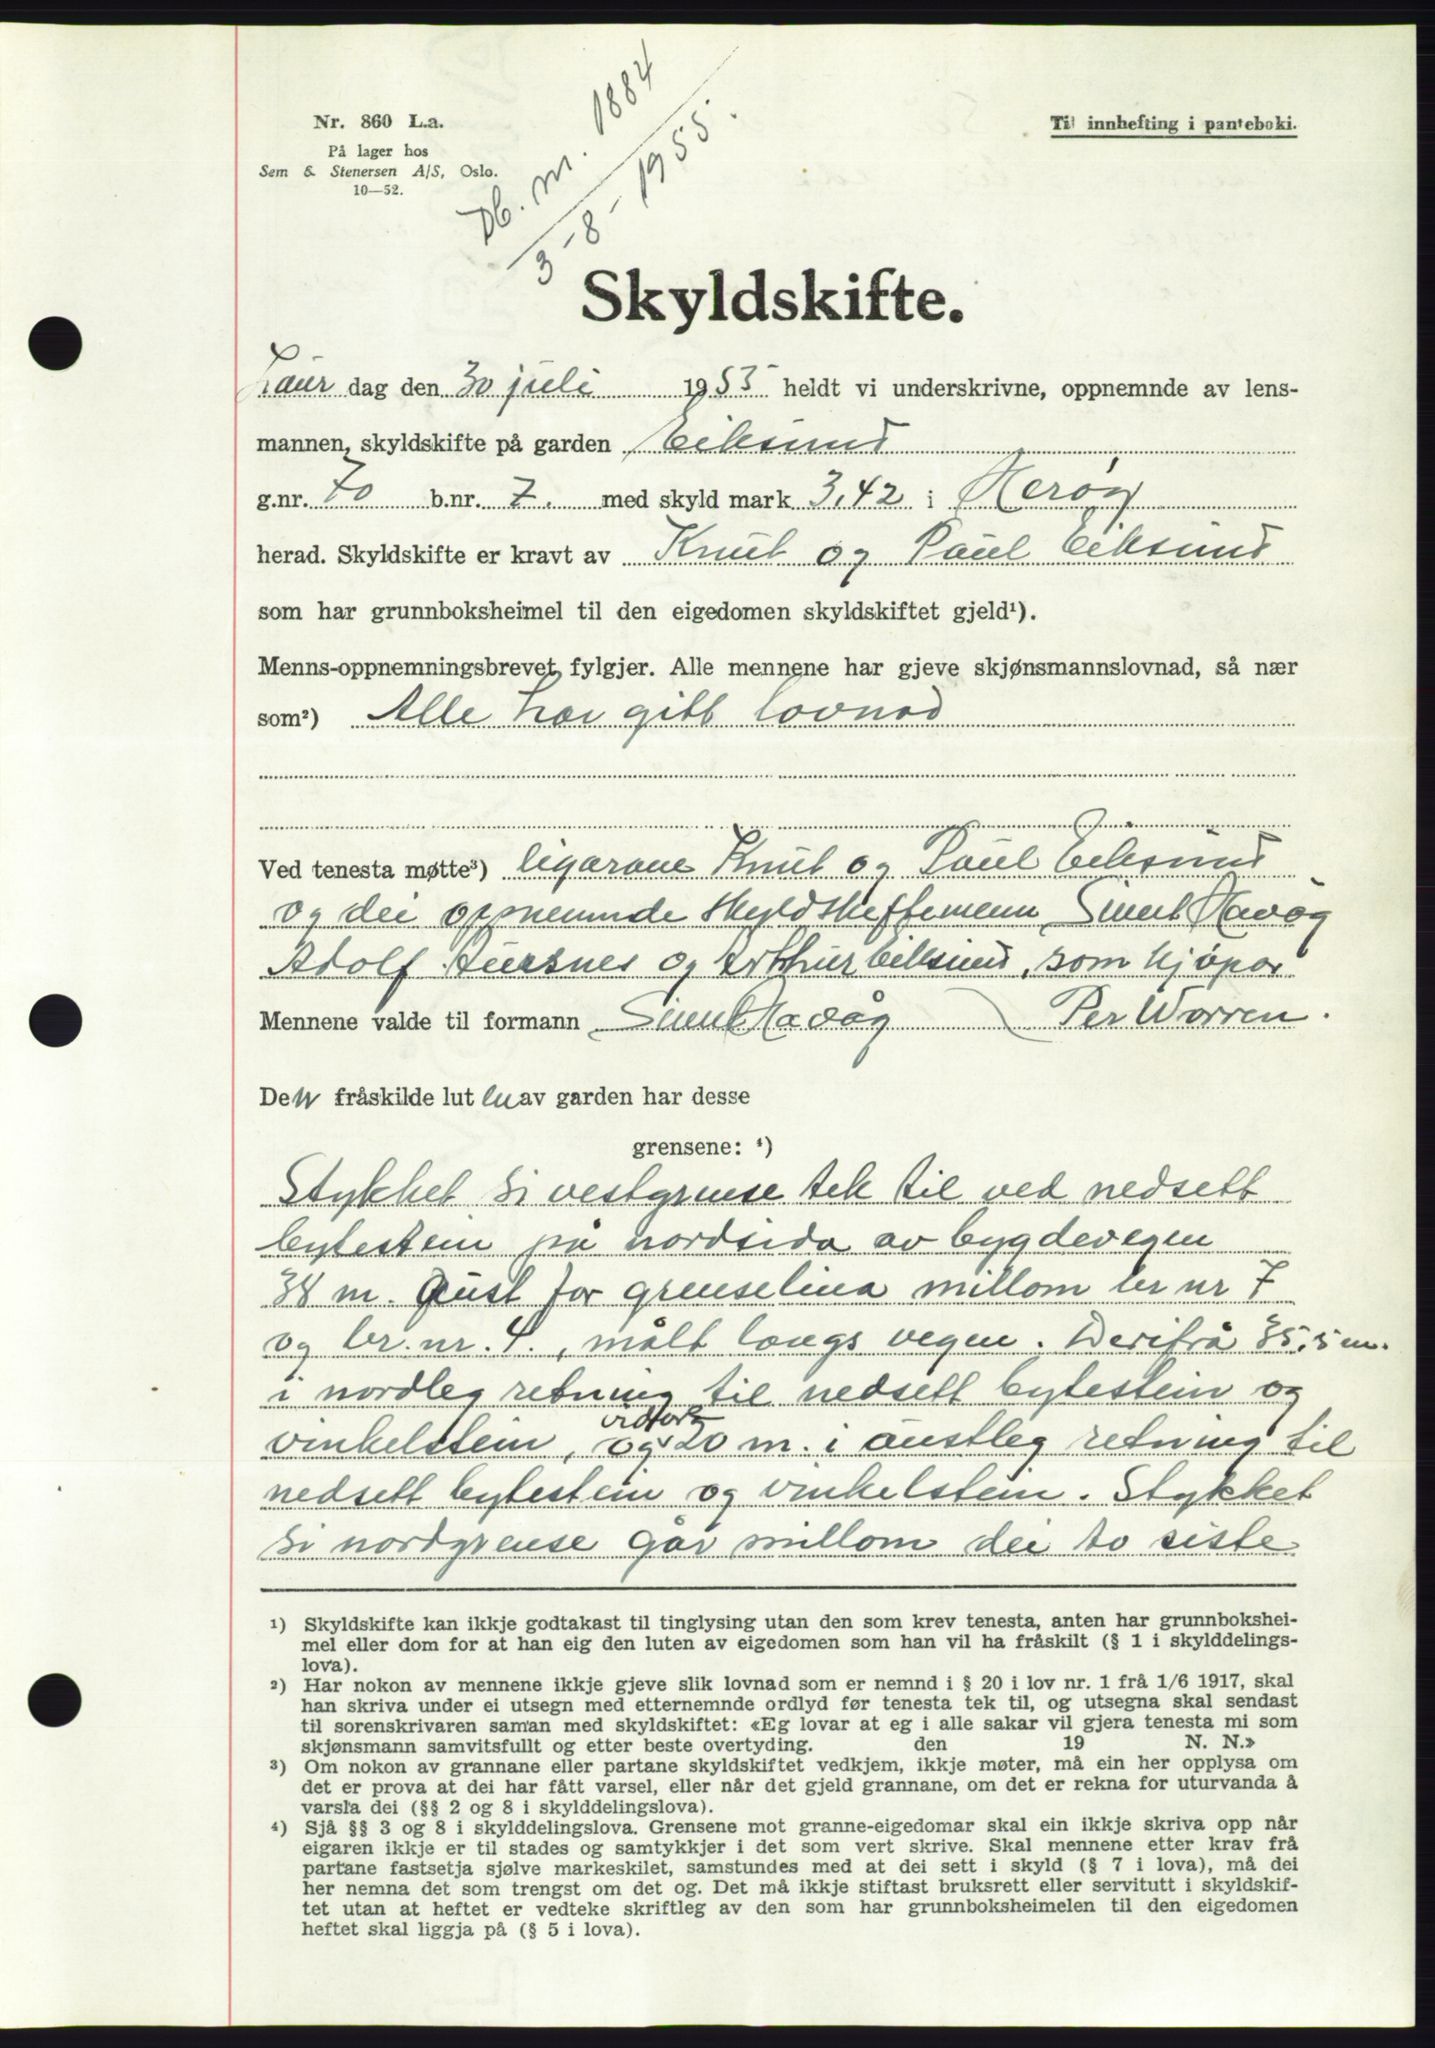 Nr. 860 L.a.
På lager hos
Sem & Stenersen A/S, Oslo.
10—52.
Db. nr. 1884
3-8-1955.
Til innhefting i panteboki.
Skyldskifte.
Laur dag den 30 juli 1955 heldt vi underskrivne, oppnemnde av lens-
mannen, skyldskifte på garden Eiksund
g.nr. 70 b.nr. 7. med skyld mark 3,42 i Herøy
herad. Skyldskifte er kravt av Knut og Paul Eiksund
som har grunnboksheimel til den eigedomen skyldskiftet gjeld¹).
Menns-oppnemningsbrevet fylgjer. Alle mennene har gjeve skjønsmannslovnad, så nær
som²) Alle har gitt lovnad
Ved tenesta møtte³) eigarane Knut og Paul Eiksund
og dei oppnemnde skyldskiftemenn Simut Havåg
Adolf Aursnes og Arthur Eiksund, som kjøpar
Per Worren.
Mennene valde til formann Simut Havåg
Den fråskilde luten av garden har desse
grensene: ⁴)
Stykket si vestgrense tek til ved nedsett
bytestein på nordsida av bygdevegen
38 m. aust for grenselina millom br nr 7
og br. nr. 4., målt langs vegen. Derifrå 35,5 m.
i nordleg retning til nedsett bytestein og
vinkelstein, og vidare 20 m. i austleg retning til
nedsett bytestein og vinkelstein. Stykket
si nordgrense går millom dei to siste
¹) Skyldskifte kan ikkje godtakast til tinglysing utan den som krev tenesta, anten har grunnbokshei-
mel eller dom for at han eig den luten av eigedomen som han vil ha fråskilt (§ 1 i skylddelings-
lova).
²) Har nokon av mennene ikkje gjeve slik lovnad som er nemnd i § 20 i lov nr. 1 frå 1/6 1917, skal
han skriva under ei utsegn med etternemnde ordlyd før tenesta tek til, og utsegna skal sendast
til sorenskrivaren saman med skyldskiftet: «Eg lovar at eg i alle sakar vil gjera tenesta mi som
skjønsmann samvitsfullt og etter beste overtyding. den 19 N. N.»
³) Om nokon av grannane eller partane skyldskiftet vedkjem, ikkje møter, må ein her opplysa om
det er prova at dei har fått varsel, eller når det gjeld grannane, om det er rekna for uturvanda å
varsla dei (§§ 2 og 8 i skylddelingslova).
⁴) Sjå §§ 3 og 8 i skylddelingslova. Grensene mot granne-eigedomar skal ein ikkje skriva opp når
eigaren ikkje er til stades og samtykkjer i det som vert skrive. Skal mennene etter krav frå
partane fastsetja sjølve markeskilet, samstundes med at dei sett i skyld (§ 7 i lova), må dei
her nemna det som trengst om det og. Det må ikkje stiftast bruksrett eller servitutt i skyldskif-
tet utan at heftet er vedteke skriftleg av den som har grunnboksheimelen til den eigedomen
heftet skal liggja på (§ 5 i lova).